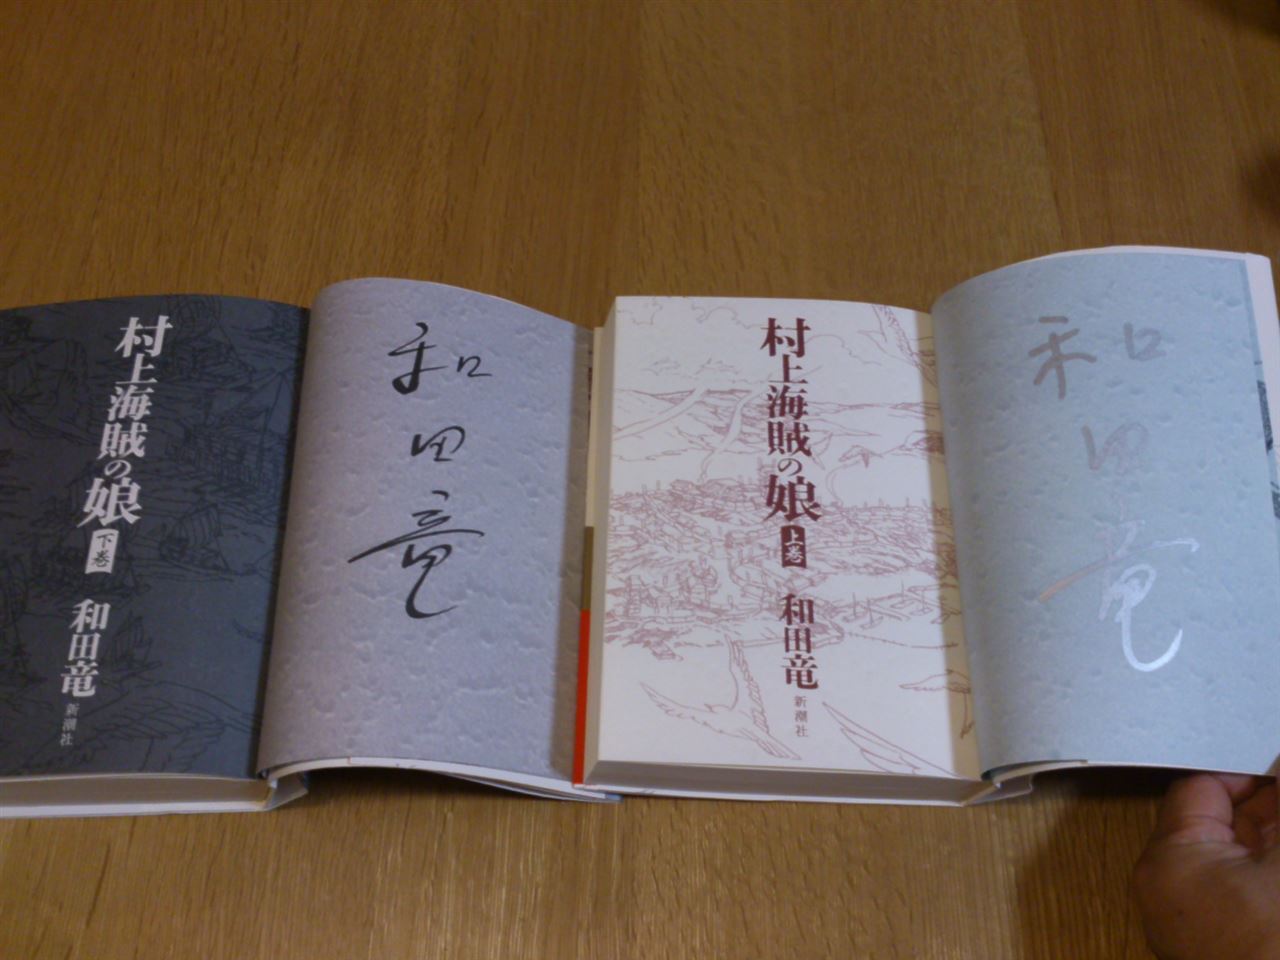 村上海賊の娘
下巻
和田竜
新潮社
和田竜
村上海賊の娘
上巻
和田竜
新潮社
和田竜